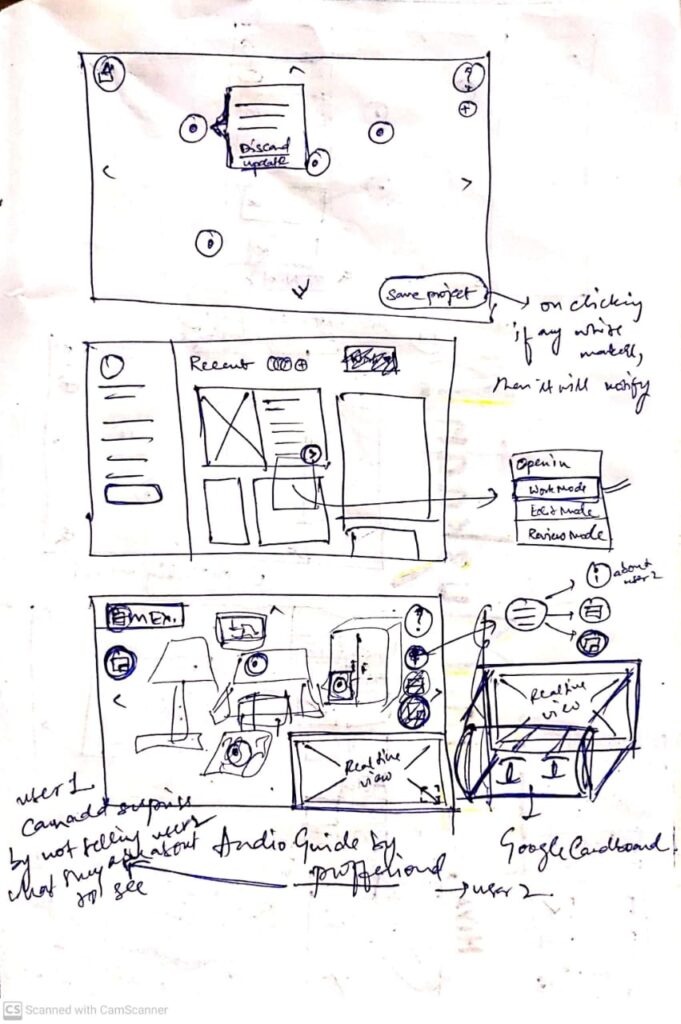 ?
+
Discard
update
Save project
on clicking
if any
then it will notify
Recent
+
Open in
Work Mode
Edit Mode
Review Mode
EMEx.
?
about
user 2
Realtime
view
Realtime
view
user 1
can add surprise
by not telling user 2
what they are about
to see
Audio Guide by
proffetional
user 2
Google Cardboard
CS Scanned with CamScanner